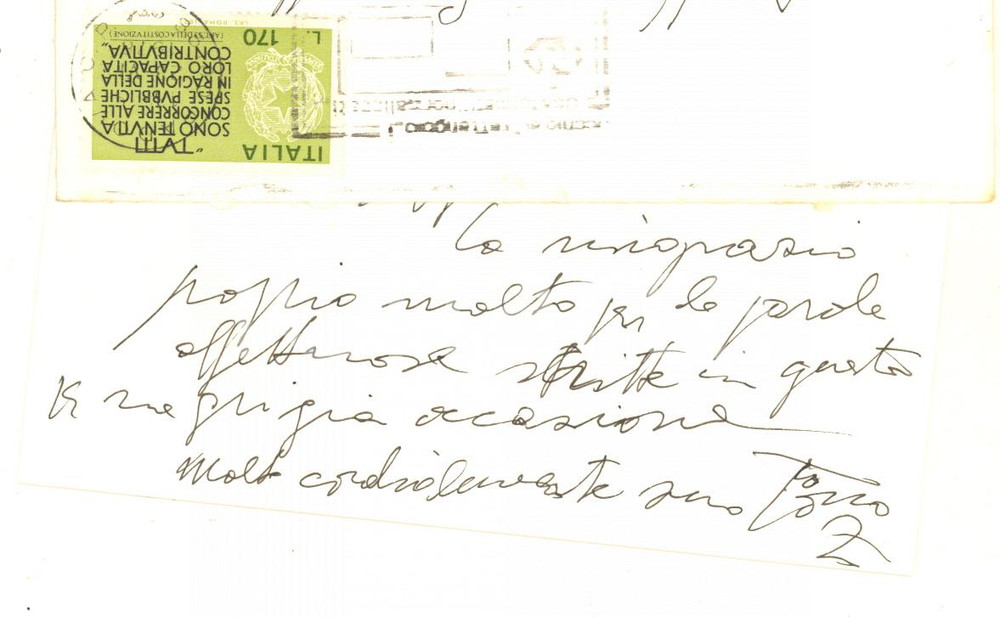 ITALIA
L. 170
"TVTTI
SONO TENVTI A
CONCORRERE ALLE
SPESE PVBBLICHE
IN RAGIONE DELLA
LORO CAPACITÀ
CONTRIBVTIVA"
(ART. 53 DELLA COSTITUZIONE)
La ringrazio
proprio molto per le parole
affettuose scritte in questa
grigia occasione
Molto cordialmente suo Tonio
Z